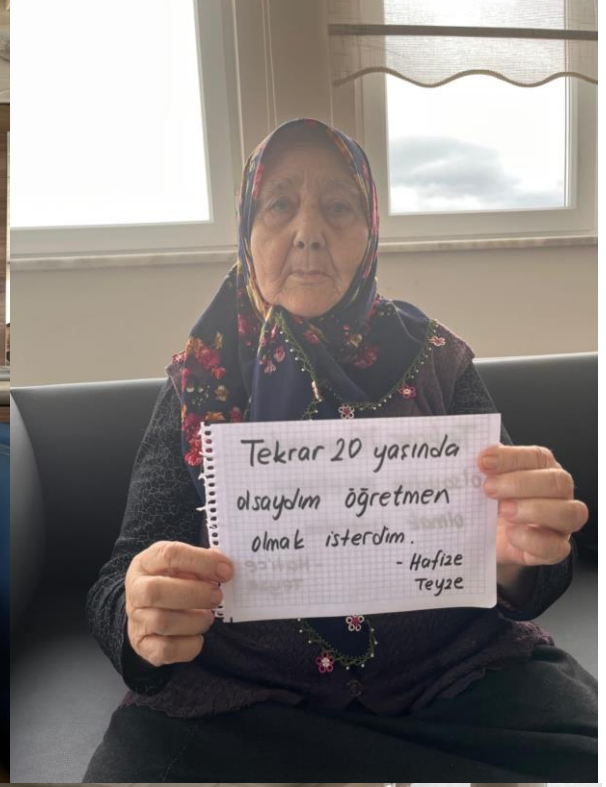 Tekrar 20 yaşında
olsaydım öğretmen
olmak isterdim.
- Hafize
Teyze